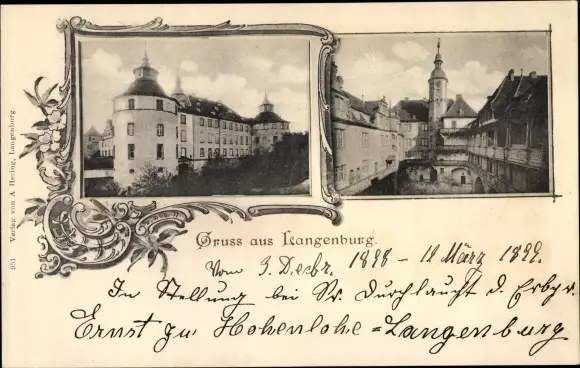 Gruss aus Langenburg.
Vom 3. Dezbr. 1898 - 11 März 1899.
In Stellung bei Sr. Durchlaucht d. Erbpr.
Ernst zu Hohenlohe=Langenburg.
951 Verlag von A Herzog, Langenburg.